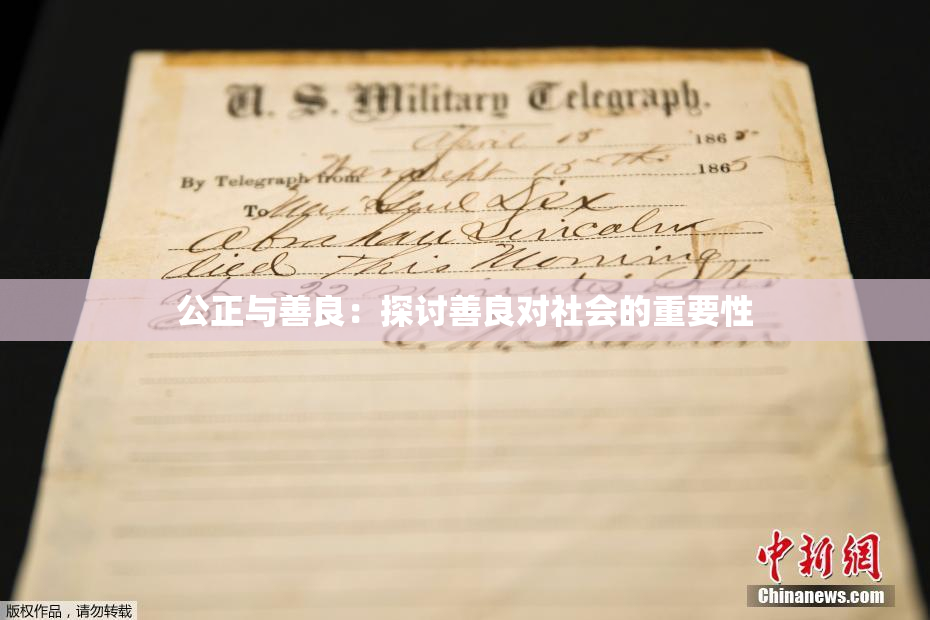 U. S. Military Telegraph.
April 15 1865
By Telegraph from War Dept 15th 1865
To Maj Genl Dix
Abraham Lincoln
died This Morning
at 22 minutes after
公正与善良：探讨善良对社会的重要性
Stanton
中新网
Chinanews.com
版权作品，请勿转载